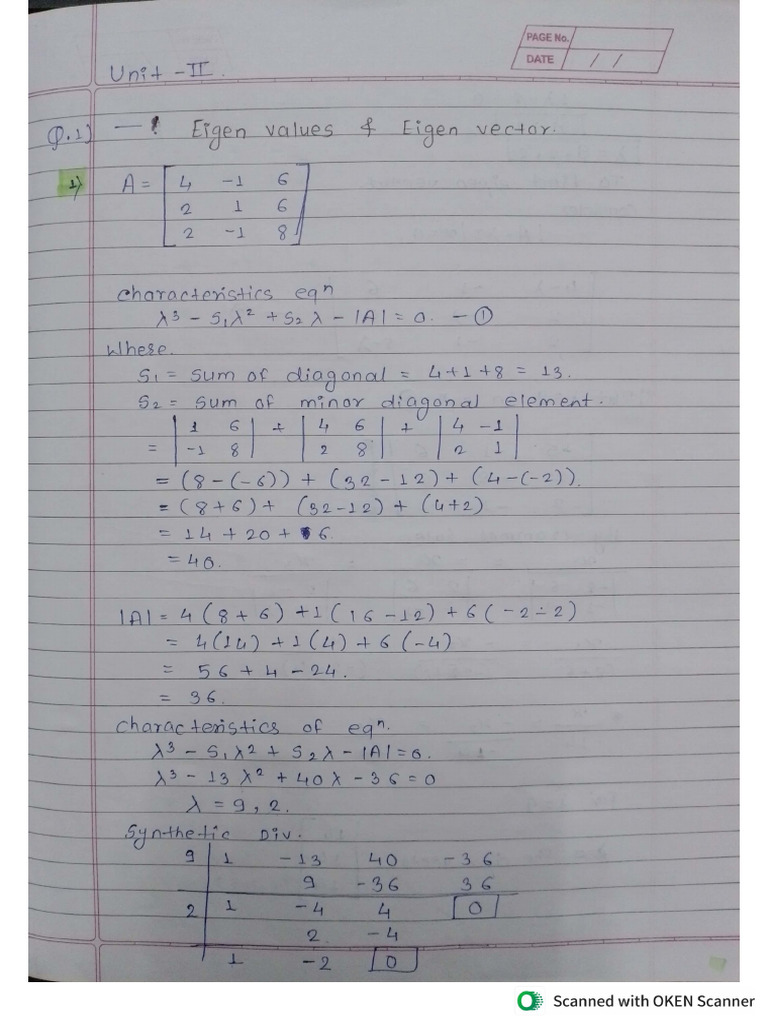 PAGE No.
DATE / /
Unit - II.
Q.1) — ! Eigen values & Eigen vector.
1) A = [ 4 -1 6
2 1 6
2 -1 8 ]
characteristics eqⁿ
λ³ - S₁λ² + S₂λ - |A| = 0. — ①
Where.
S₁ = sum of diagonal = 4+1+8 = 13.
S₂ = sum of minor diagonal element.
= | 1 6 | + | 4 6 | + | 4 -1 |
| -1 8 | | 2 8 | | 2 1 |
= (8-(-6)) + (32-12) + (4-(-2)).
= (8+6) + (32-12) + (4+2)
= 14 + 20 + 6.
= 40.
|A| = 4(8+6) +1(16-12) + 6(-2-2)
= 4(14) + 1(4) + 6(-4)
= 56 + 4 - 24.
= 36.
characteristics of eqⁿ.
λ³ - S₁λ² + S₂λ - |A| = 0.
λ³ - 13λ² + 40λ - 36 = 0
λ = 9, 2.
Synthetic Div.
9 | 1 -13 40 -36
9 -36 36
2 | 1 -4 4 0
2 -4
1 -2 0
Scanned with OKEN Scanner